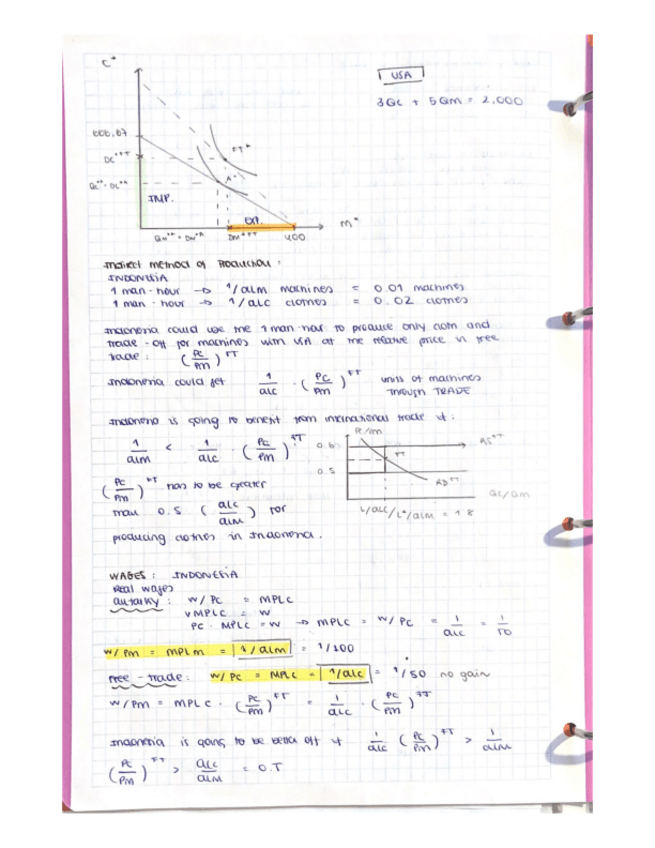 C*
USA
3Qc + 5Qm = 2,000
666,67
Dc*FT
FT*
Qc*A = Dc*A
A*
IMP.
EXP.
M*
Qm*A = Dm*A
Dm*FT
400
Indirect method of Production:
INDONESIA
1 man-hour → 1/aLM machines = 0.01 machines
1 man-hour → 1/aLC clothes = 0.02 clothes
Indonesia could use the 1 man-hour to produce only cloth and
trade-off for machines with USA at the relative price in free
trade: (Pc/Pm)^FT
Indonesia could get 1/aLC · (Pc/Pm)^FT units of machines
through TRADE
Indonesia is going to benefit from international trade if:
1/aLM < 1/aLC · (Pc/Pm)^FT
Pc/Pm
0.6
RS^FT
FT
0.5
RD^FT
Qc/Qm
L/aLC/L*/aLM = 1.8
(Pc/Pm)^FT has to be greater
than 0.5 (aLC/aLM) for
producing clothes in Indonesia.
WAGES: INDONESIA
Real wages
autarky: W/Pc = MPLC
VMPLC = W
Pc · MPLC = W → MPLC = W/Pc = 1/aLC = 1/50
W/Pm = MPLm = 1/aLM = 1/100
Free-trade: W/Pc = MPLC = 1/aLC = 1/50 no gain
W/Pm = MPLC · (Pc/Pm)^FT = 1/aLC · (Pc/Pm)^FT
Indonesia is going to be better off if 1/aLC (Pc/Pm)^FT > 1/aLM
(Pc/Pm)^FT > aLC/aLM = 0.5